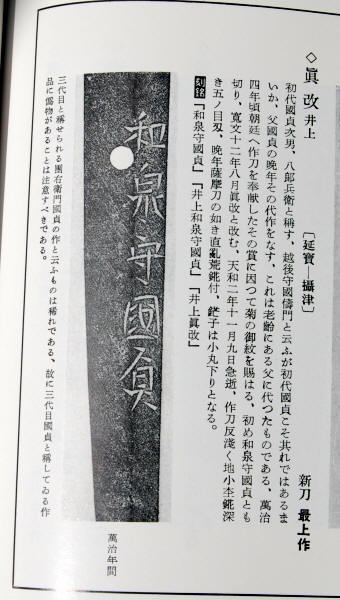 ◇眞改 井上 〔延寶―攝津〕 新刀 最上作
初代國貞次男、八郎兵衞と稱す、越後守國儔門と云ふが初代國貞こそ其れではあるま
いか、父國貞の晩年その代作をなす、これは老齡にある父に代つたものである、萬治
四年頃朝廷へ作刀を奉献したその賞に因つて菊の御紋を賜はる、初め和泉守國貞とも
切り、寛文十二年八月眞改と改む、天和二年十一月九日急逝、作刀反淺く地小杢錵深
き五ノ目刄、晩年薩摩刀の如き直亂荒錵付、鋩子は小丸下りとなる。
刻銘「和泉守國貞」「井上和泉守國貞」「井上眞改」
和泉守國貞
萬治年間
三代目と稱せられる團右衞門國貞の作と云ふものは稀れである、故に三代目國貞と稱してゐる作
品に僞物があることは注意すべきである。